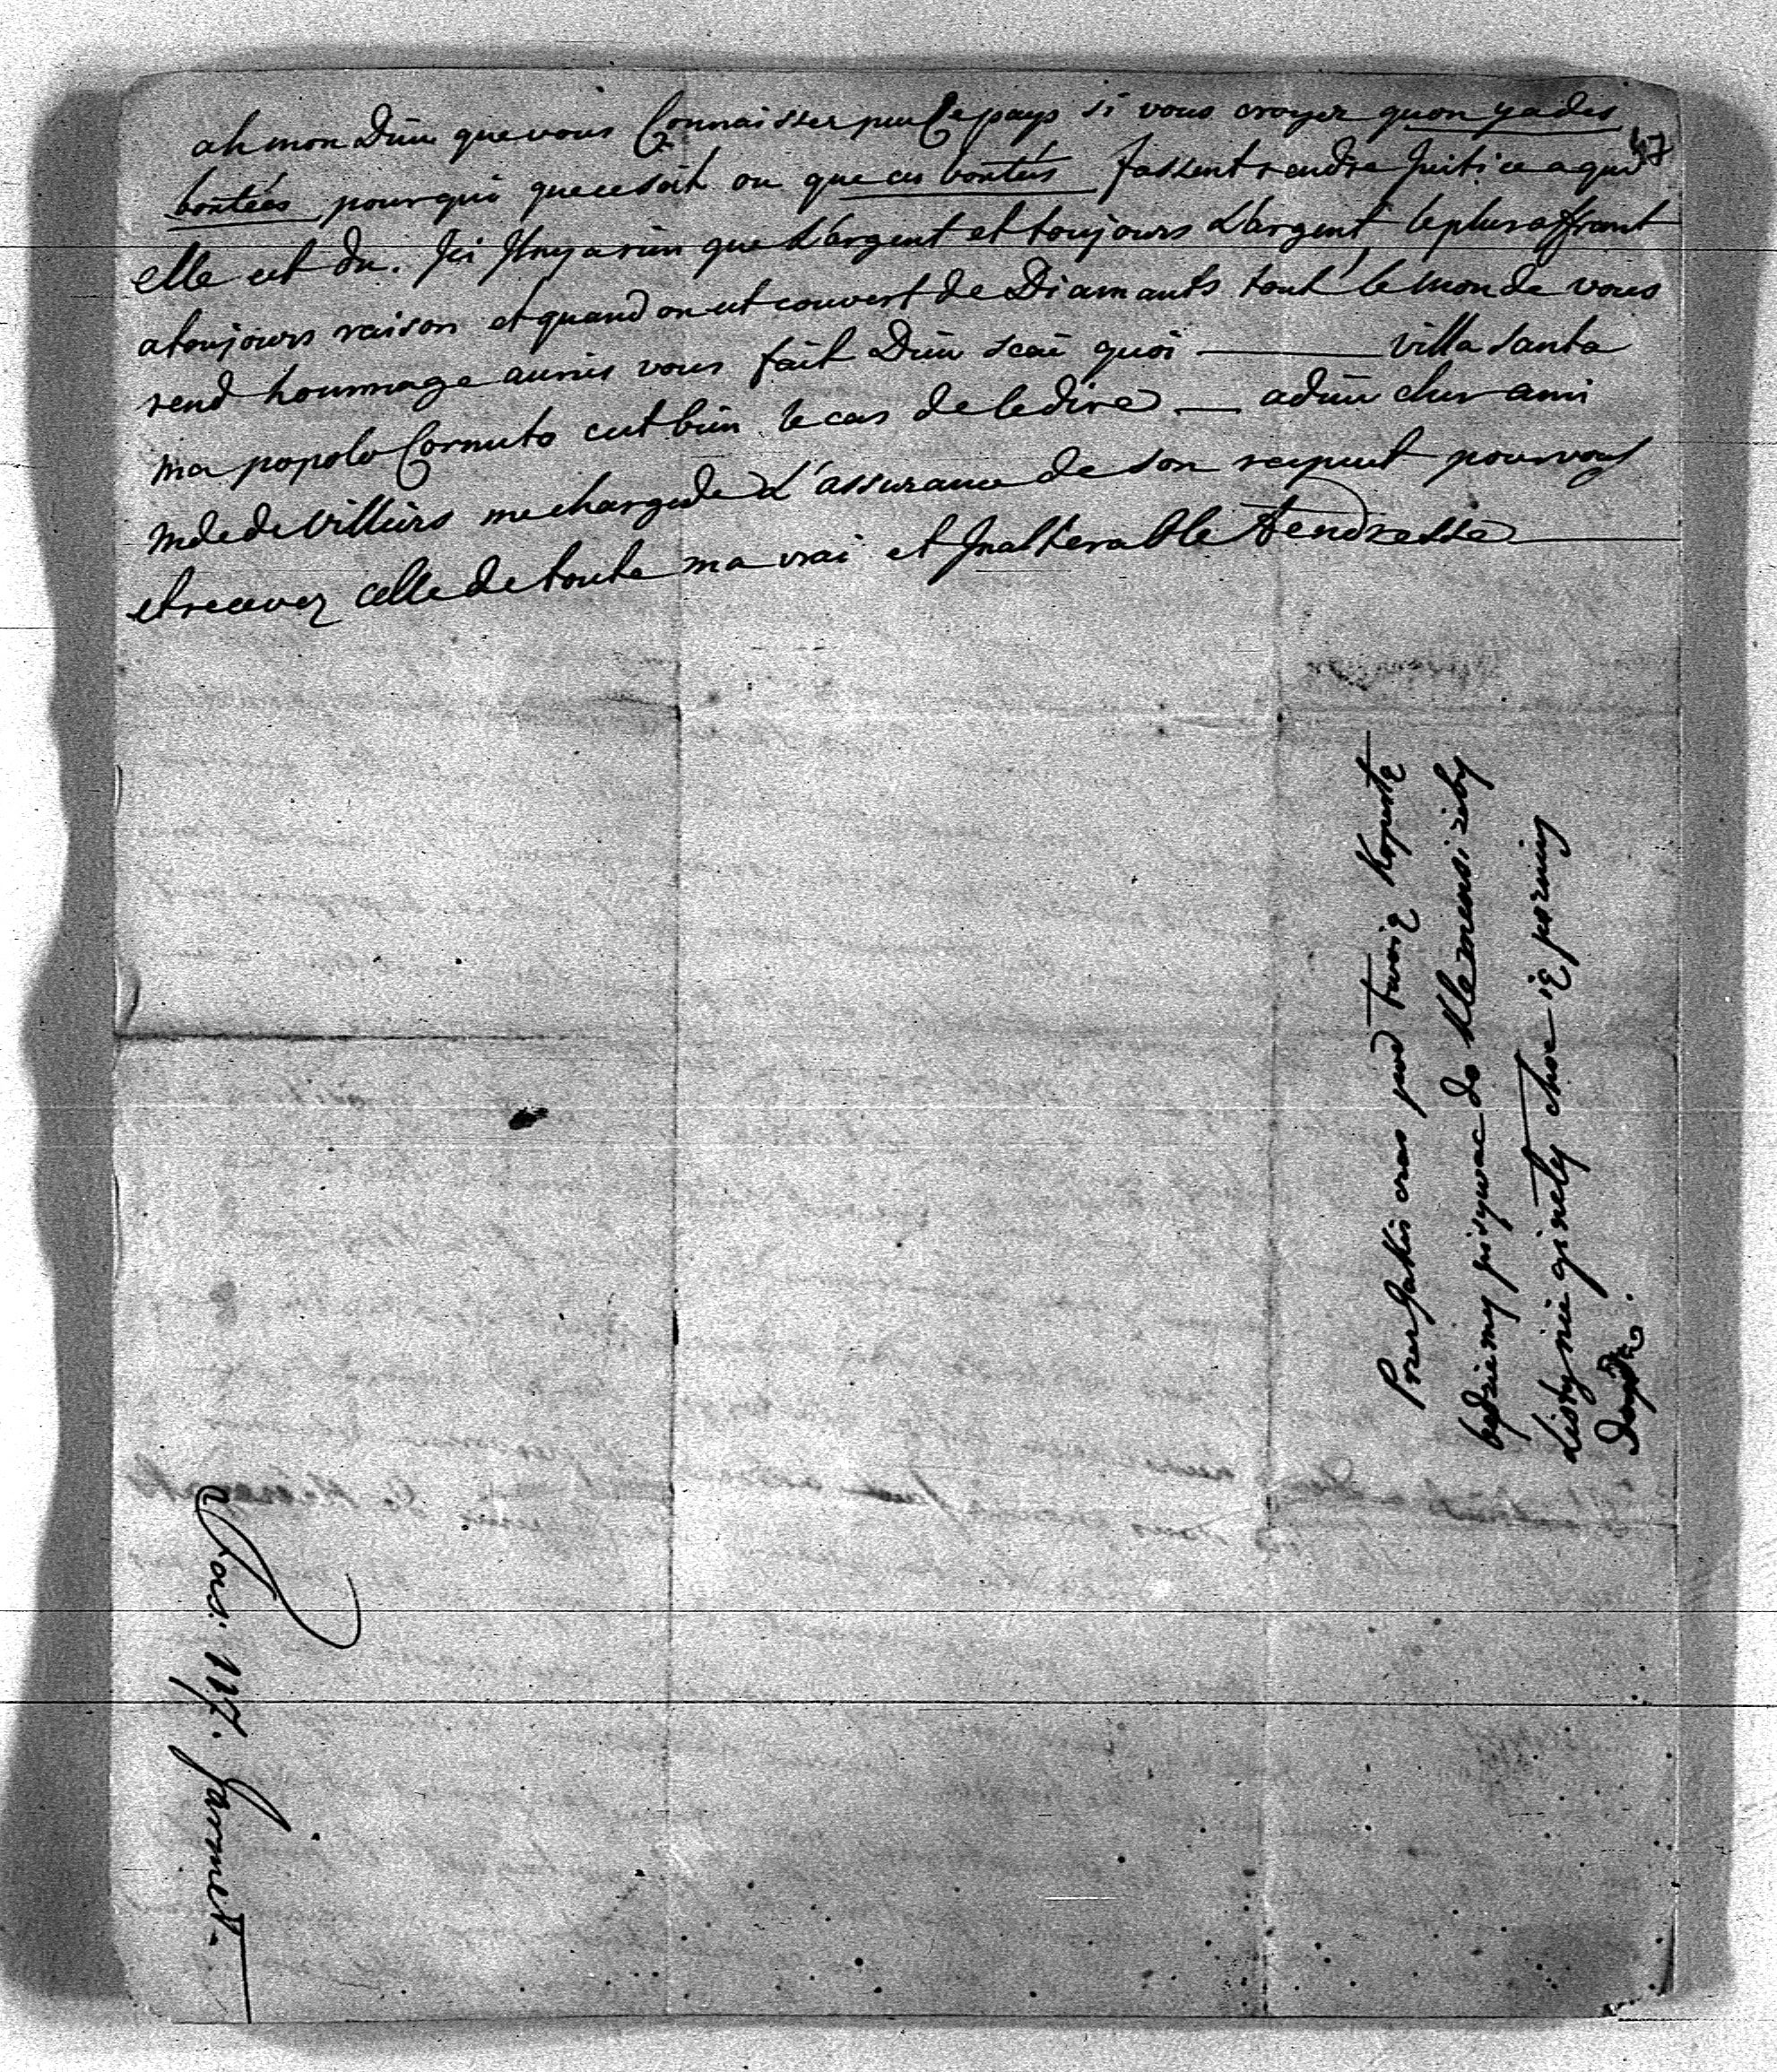 ah mon Dieu que vous Connaissez peu le pays si vous croyez quon y a des
47
bontées pour qui que ce soit ou que ces bontés fassent rendre justice a qui
elle est du. Ici Il ny a rien que L'argent et toujours L'argent, le plus offrant
a toujours raison et quand on est couvert de Diamants tout le monde vous
rend hommage aussis vous fait Dieu scai quoi — villa santa
ma popolo Cornuto c'est bien le cas de le dire — adieu cher ami
mde de Villiers me charge de L'assurance de son respect pour vous
et recevez celle de toute ma vrai et Inalterable tendresse
Przez jakis czas pod twoią Kopertą
będziemy pisywac do Klemensi zeby
listy nie gineły chce ię pozniey
Janvier